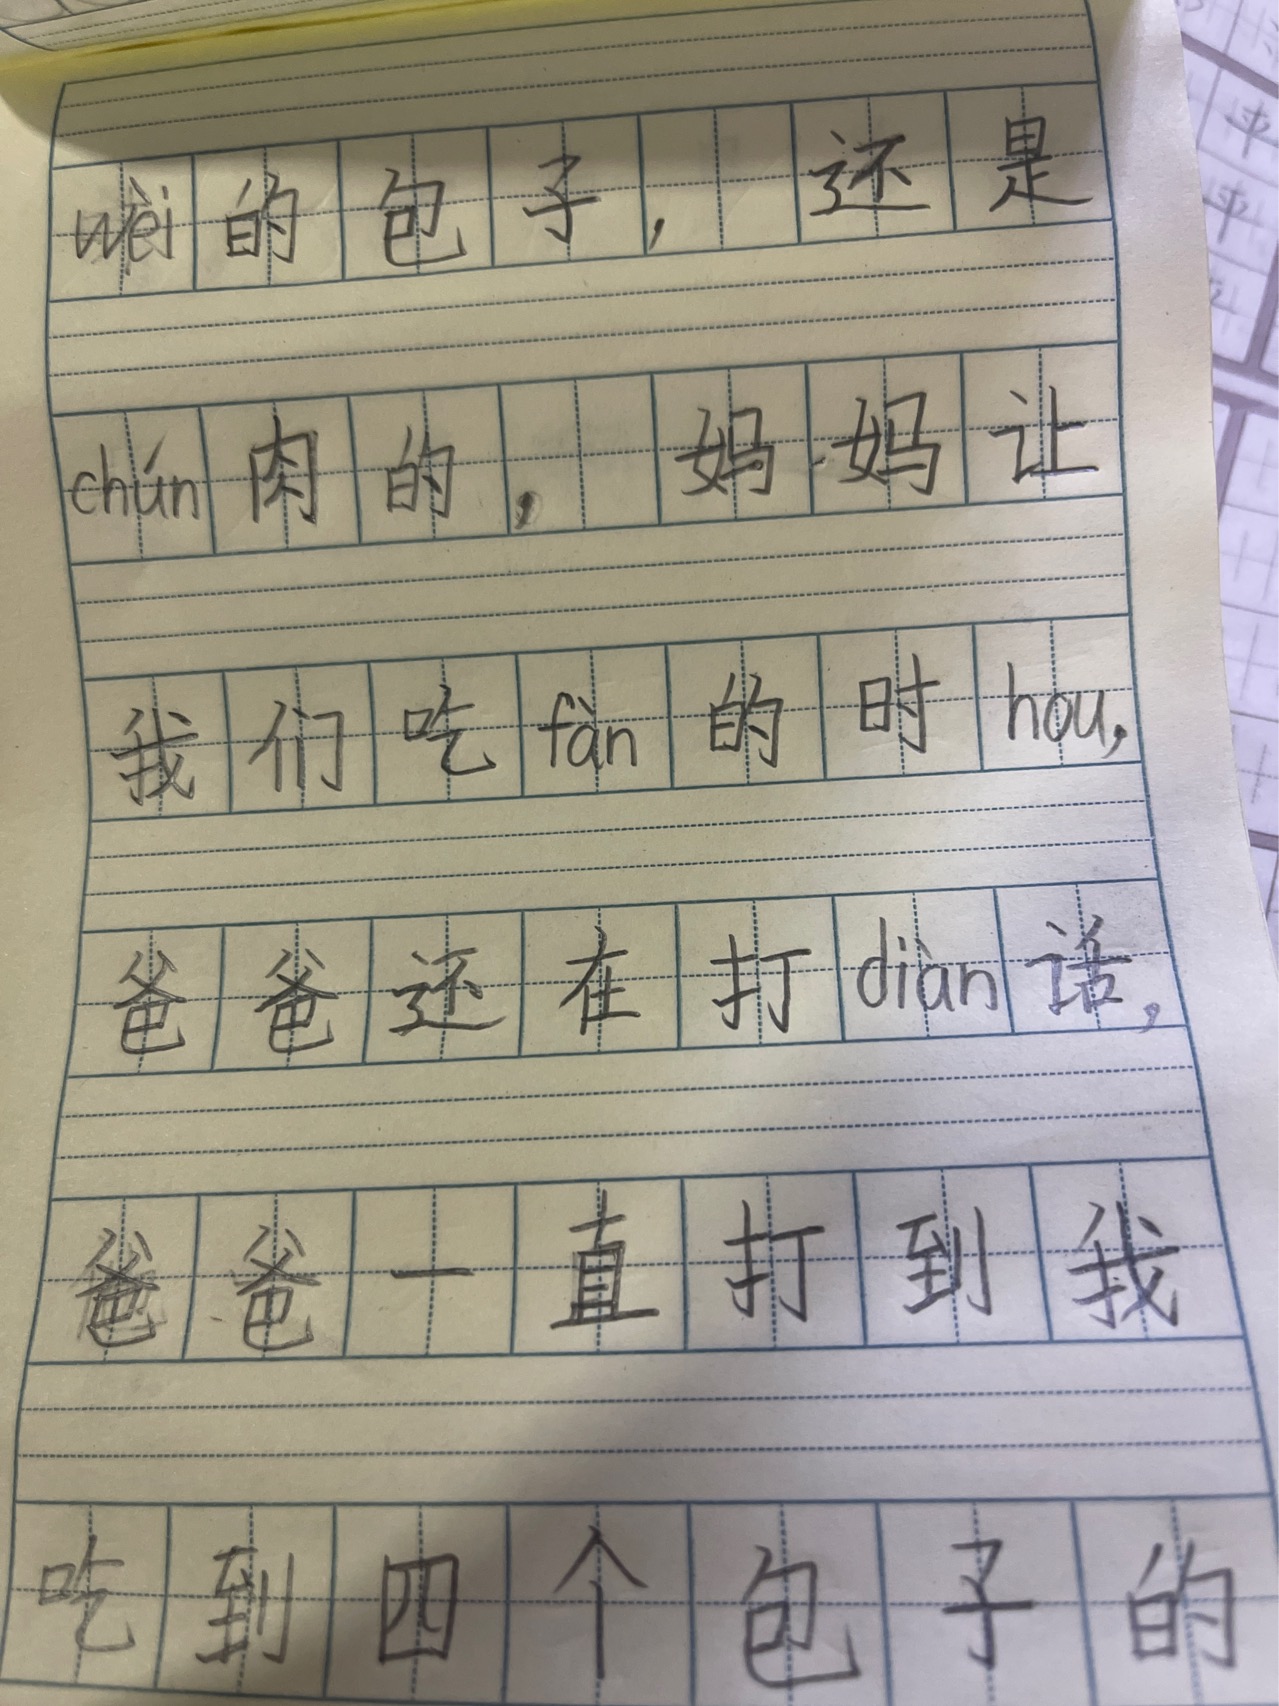 wèi的包子，还是
chún肉的，妈妈让
我们吃fàn的时hou，
爸爸还在打diàn话，
爸爸一直打到我
吃到四个包子的